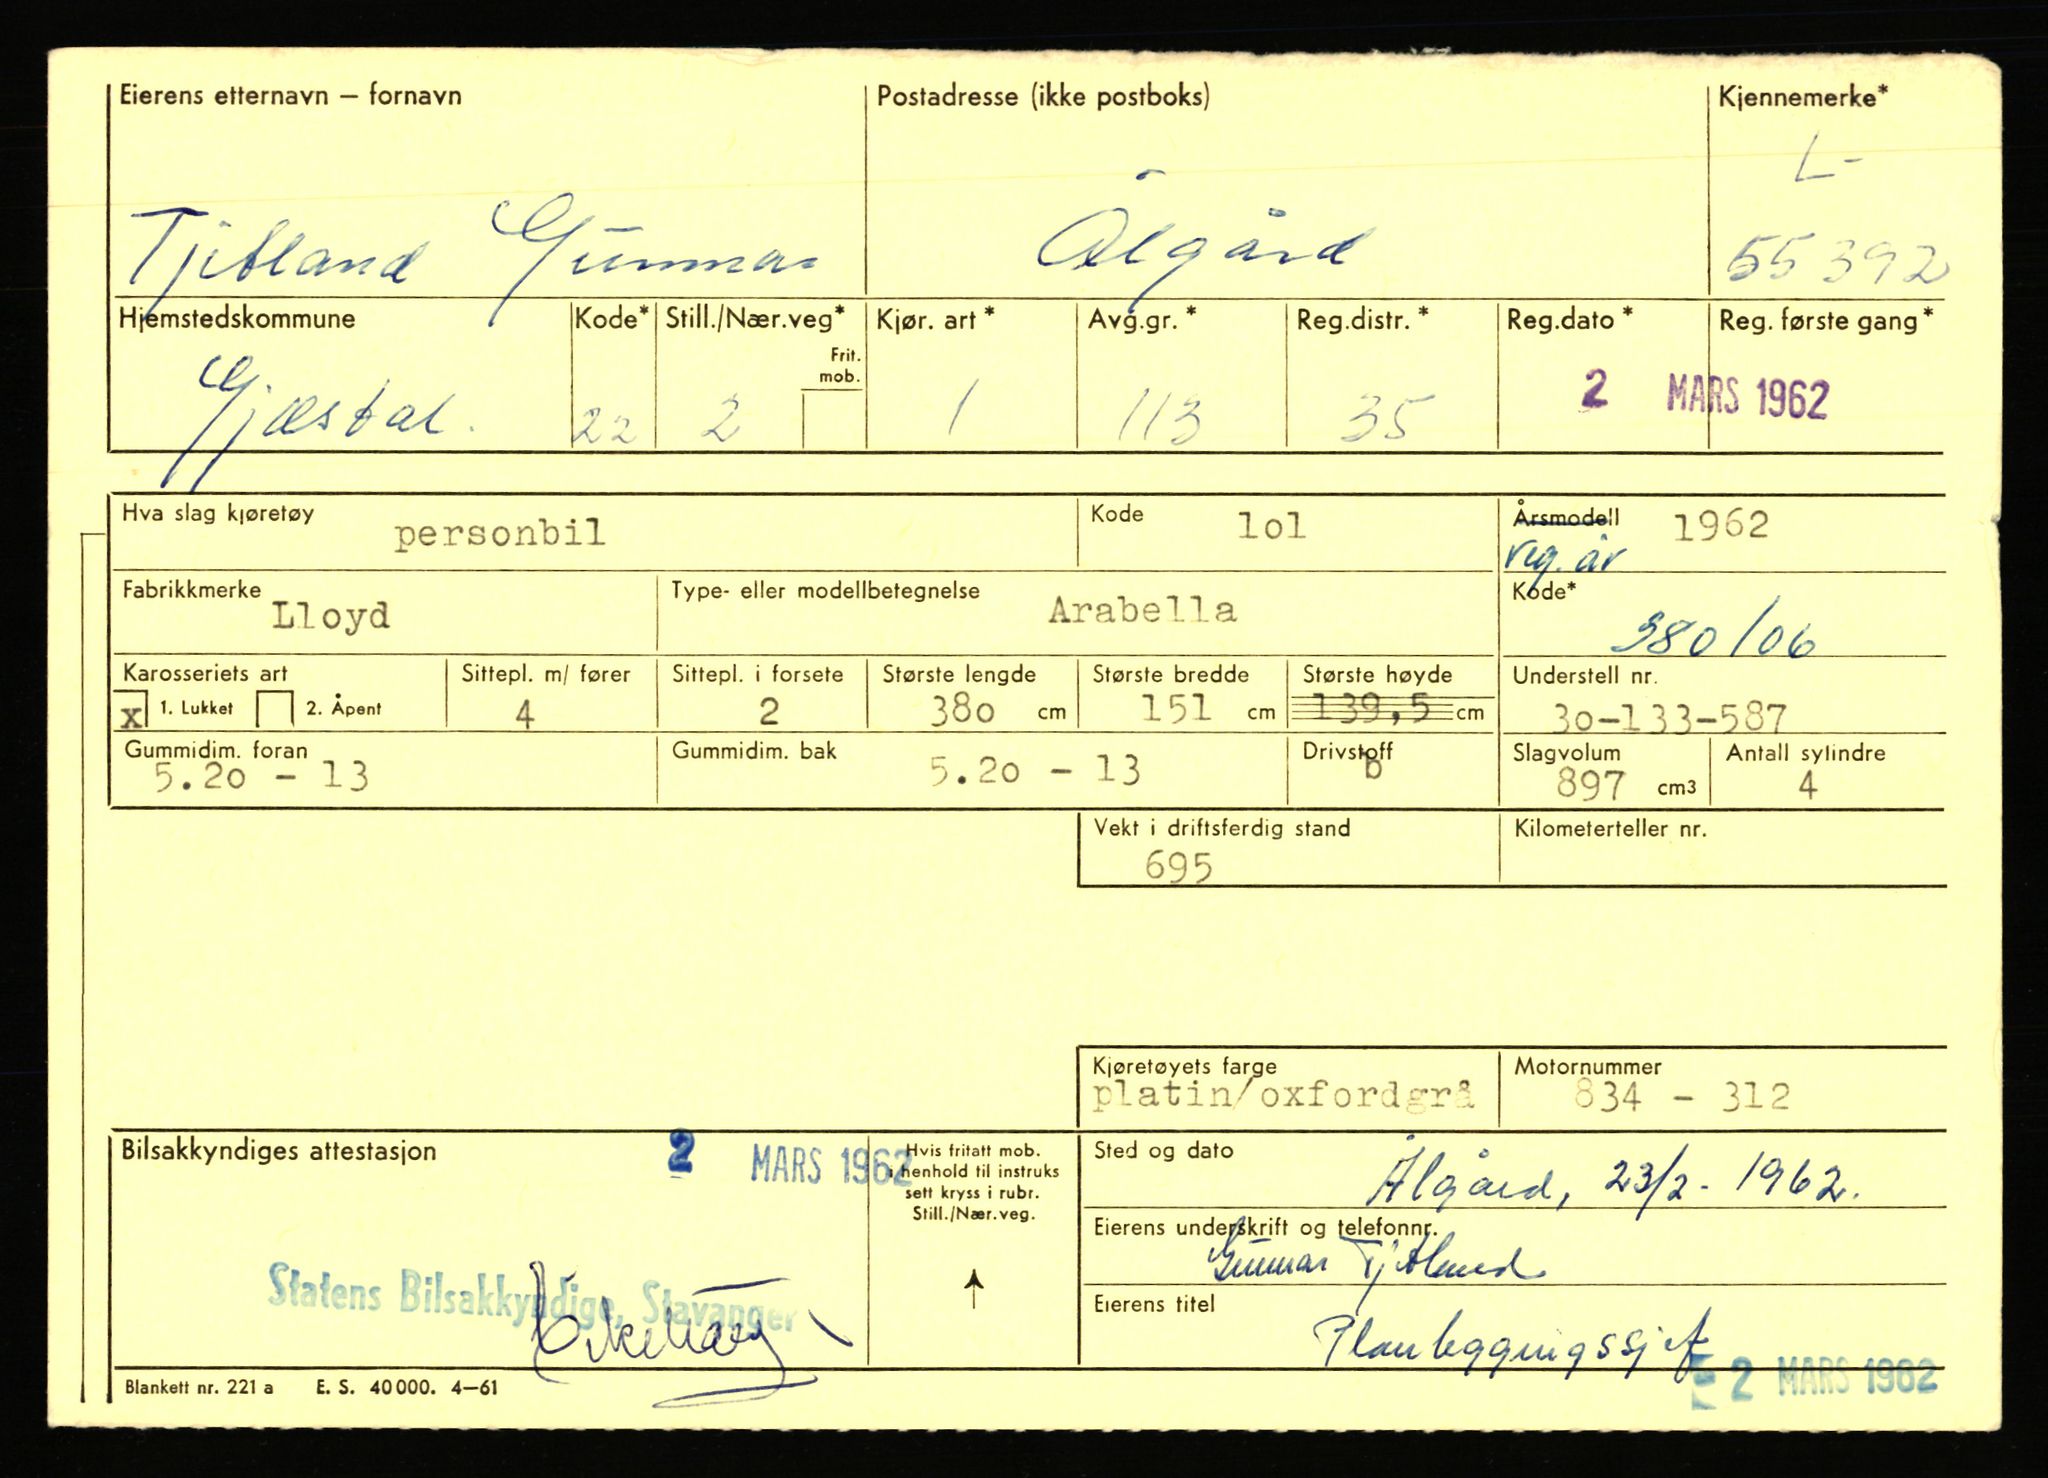 Eierens etternavn – fornavn Postadresse (ikke postboks) Kjennemerke*
L-
Tjitland Gunnar Ålgård 55392
Hjemstedskommune Kode* Still./Nær.veg* Kjør. art* Avg.gr.* Reg.distr.* Reg.dato* Reg. første gang*
Frit. mob.
Gjæstal. 22 2 1 113 35 2 MARS 1962
Hva slag kjøretøy personbil Kode 1o1 Årsmodell 1962
reg. år
Fabrikkmerke Lloyd Type- eller modellbetegnelse Arabella Kode*
380/06
Karosseriets art Sittepl. m/ fører Sittepl. i forsete Største lengde Største bredde Største høyde Understell nr.
x 1. Lukket 2. Åpent 4 2 38o cm 151 cm 139,5 cm 3o-133-587
Gummidim. foran Gummidim. bak Drivstoff Slagvolum Antall sylindre
5.2o - 13 5.2o - 13 b 897 cm3 4
Vekt i driftsferdig stand Kilometerteller nr.
695
Kjøretøyets farge Motornummer
platin/oxfordgrå 834 - 312
Bilsakkyndiges attestasjon 2 MARS 1962
Hvis fritatt mob.
i henhold til instruks
sett kryss i rubr.
Still./Nær.veg.
Sted og dato
Ålgård, 23/2- 1962.
Eierens underskrift og telefonnr.
Gunnar Tjitland
Statens Bilsakkyndige, Stavanger
Eierens titel
Planleggingssjef
2 MARS 1962
Blankett nr. 221 a E. S. 40000. 4–61